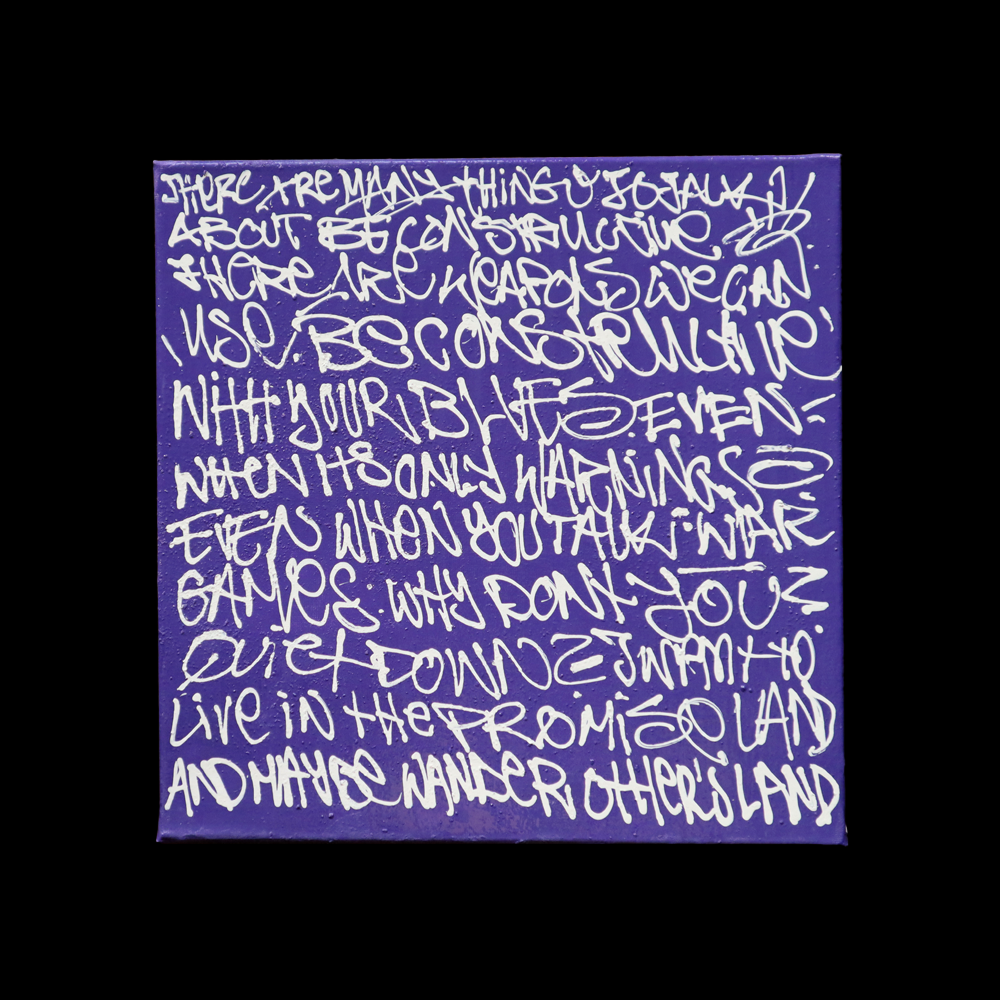 THERE ARE MANY THINGS TO TALK
ABOUT BE CONSTRUCTIVE
THERE ARE WEAPONS WE CAN
USE. BE CONSTRUCTIVE
WITH YOUR BLUES. EVEN
WHEN ITS ONLY WARNINGS
EVEN WHEN YOU TALK WAR
GAMES. WHY DON'T YOU
QUIET DOWN? I WANT TO
LIVE IN THE PROMISE LAND
AND MAYBE WANDER OTHER'S LAND